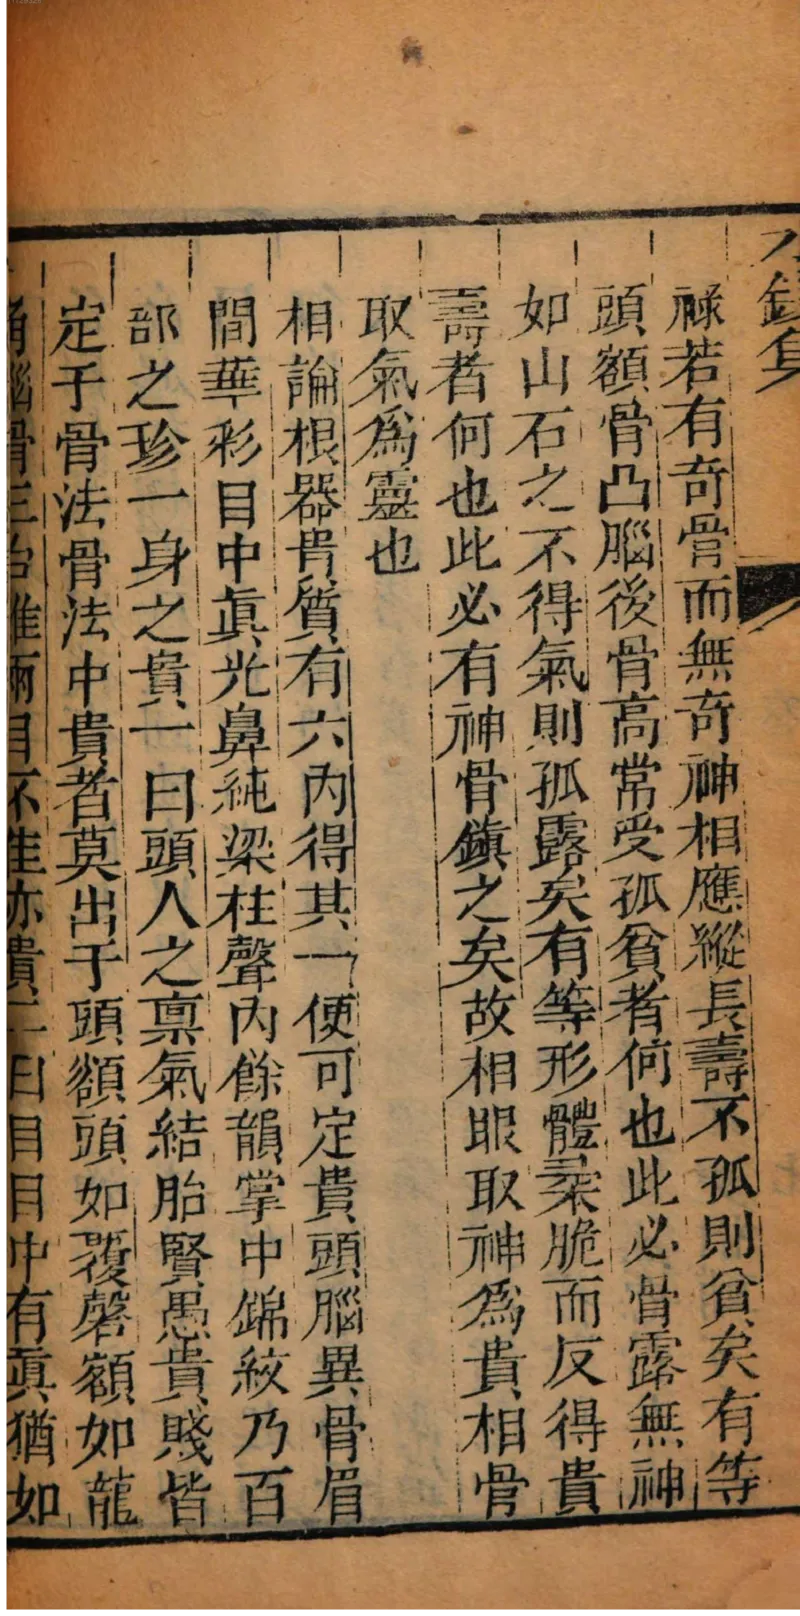 祿若有奇骨而無奇神相應縱長壽不孤則貧矣有等
頭額骨凸腦後骨高常受孤貧者何也此必骨露無神
如山石之不得氣則孤露矣有等形體柔脆而反得貴
壽者何也此必有神骨鎮之矣故相眼取神為貴相骨
取氣為靈也
相論根器貴質有六內得其一便可定貴頭腦異骨眉
間華彩目中眞光鼻純梁柱聲內餘韻掌中錦紋乃百
部之珍一身之貴一曰頭人之稟氣結胎賢愚貴賤皆
定于骨法骨法中貴者莫出于頭額頭如覆磬額如龍
角腦骨三台雖兩目不佳亦貴二曰目目中有眞猶如